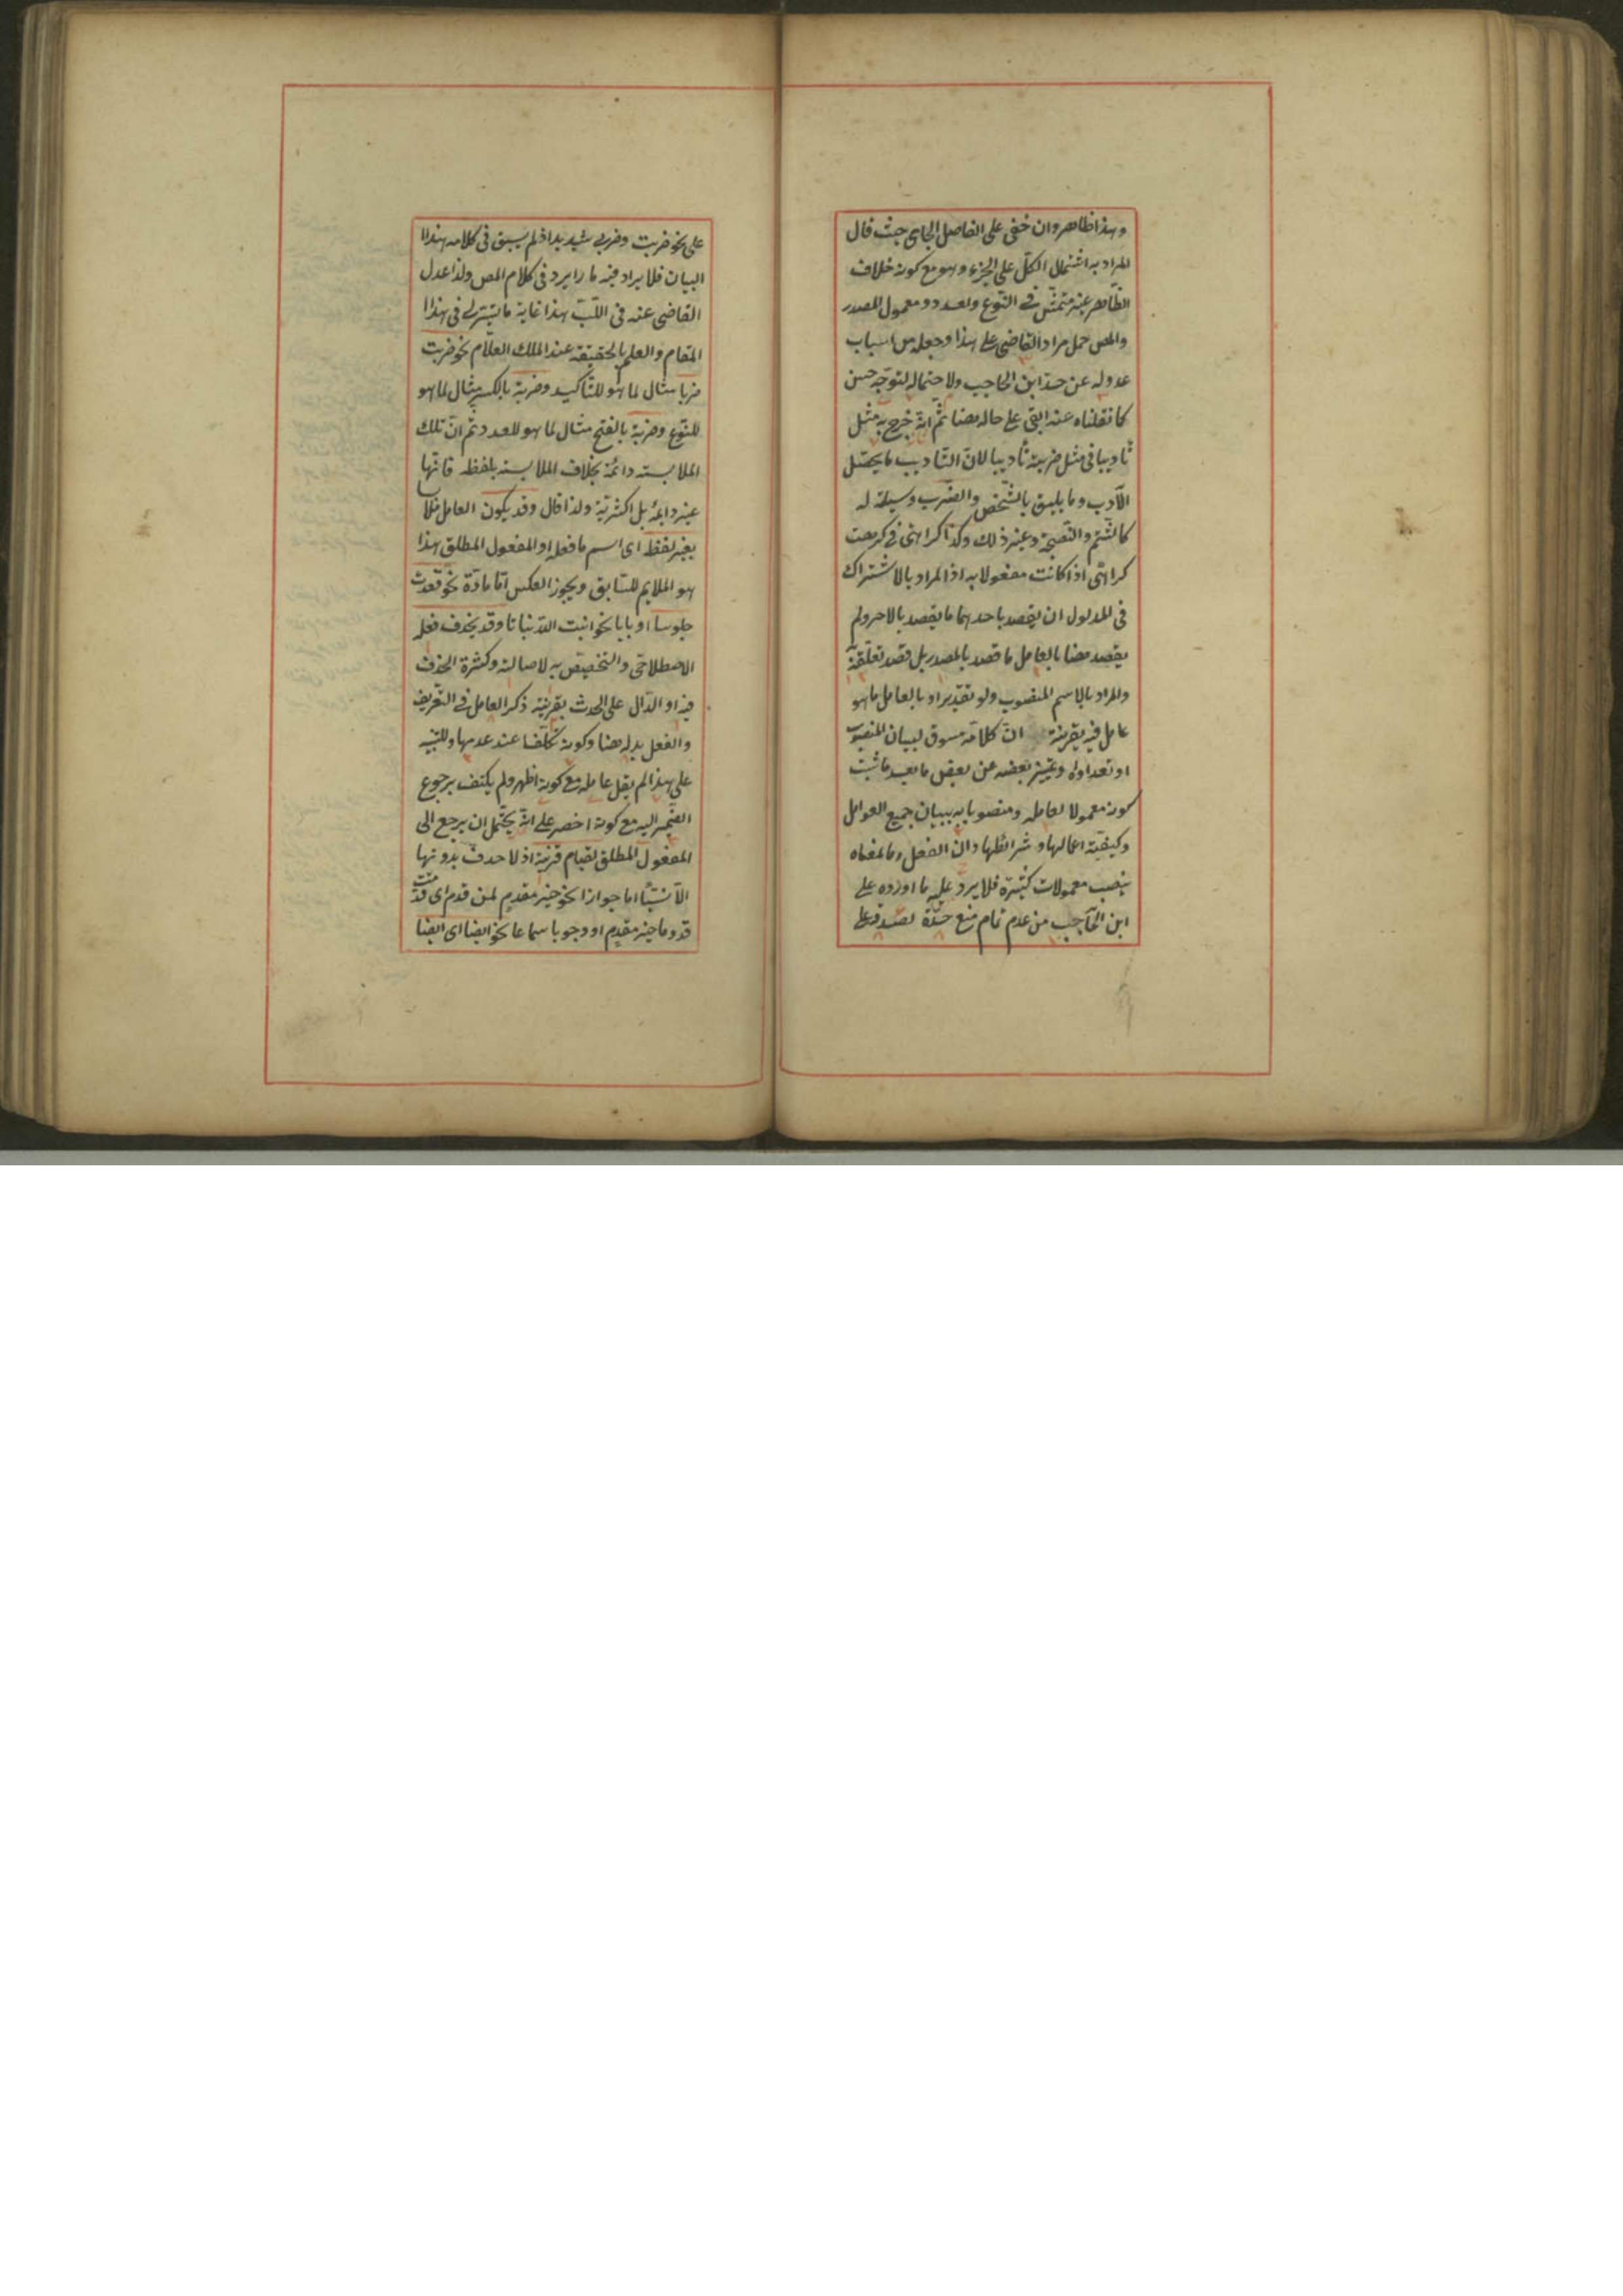 وهذا ظاهر وان خفى على الفاضل الجامى حيث قال
المراد به اشتمال الكل على الجزء وهو مع كونه خلاف
الظاهر غير متمش فى النوع والعدد ومعمول المصدر
والمص حمل مراد القاضى على هذا وجعله من اسباب
عدوله عن حد ابن الحاجب ولاحتماله لتوجيه حسن
كما نقلناه عنه ابقى على حاله هنا ثم انه خرج به مثل
تأديبا فى مثل ضربته تأديبا لان التأديب ما يحصل
الأدب وما يليق بالشخص والضرب وسيلة له
كالشتم والنصيحة وغير ذلك وكذا كراهتى فى كرهت
كراهتى اذا كانت مفعولا به اذ المراد بالاشتراك
فى المدلول ان يقصد باحدهما ما يقصد بالاخر ولم
يقصد هنا بالعامل ما قصد بالمصدر بل قصد تعلقه به
والمراد بالاسم المنصوب ولو تقديرا وبالعامل ما هو
عامل فيه بقرينة ان كلامه مسوق لبيان المنصوب
او تعداده وتمييز بعضه عن بعض ما بعد ما ثبت
كونه معمولا لعامله ومنصوبا به ببيان جميع العوامل
وكيفية اعمالها وشرائطها وان الفعل وما بمعناه
ينصب معمولات كثيرة فلا يرد عليه ما اورده على
ابن الحاجب من عدم تمام منع حده لصدقه على
على نحو ضربت وضربى شديد اذ لم يسبق فى كلامه هذا
البيان فلا يراد فيه ما را يرد فى كلام المص ولذا عدل
القاضى عنه فى اللب هذا غاية ما تيسر لى فى هذا
المقام والعلم بالحقيقة عند الملك العلام نحو ضربت
ضربا مثال لما هو للتأكيد وضربة بالكسر مثال لما هو
للنوع وضربة بالفتح مثال لما هو للعدد ثم ان تلك
الملابسة دائمة بخلاف الملابسة بلفظه فانها
غير دائمة بل اكثرية ولذا قال وقد يكون العامل ملابسا
بغير لفظه اى اسم ما فعله او المفعول المطلق هذا
هو الملايم للسابق ويجوز العكس اما مادة نحو قعدت
جلوسا او بابا نحو انبت الله نباتا وقد يحذف فعله
الاصطلاحى والتخصيص به لاصالته وكثرة الحذف
فيه او الدال على الحدث بقرينة ذكر العامل فى التعريف
والفعل بدله هنا وكونه تكلفا عند عدمها وللتنبيه
على هذا لم يقل عامله مع كونه اظهر ولم يكتف برجوع
الضمير اليه مع كونه اخصر على انه يحتمل ان يرجع الى
المفعول المطلق لقيام قرينة اذ لا حذف بدونها
الا نسيا اما جوازا نحو خير مقدم لمن قدم اى قدمت
قدوما خير مقدم او وجوبا سماعا نحو ايضا اى ايضا